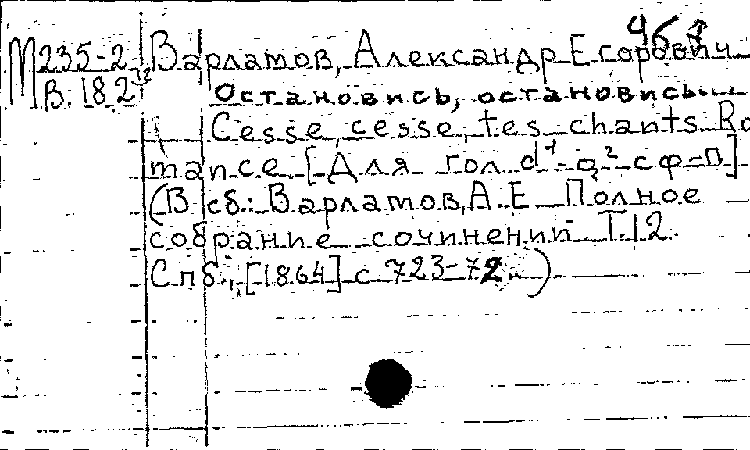 М235-2 Варламов, Александр Егорович
В.182 Остановись, остановись!...
Cesse, cesse, tes chants. Ro
mance [Для гол. d¹-g² с ф-п]
(В сб.: Варламов, А.Е. Полное
собрание сочинений Т.12
Спб., [1864] с 723-72